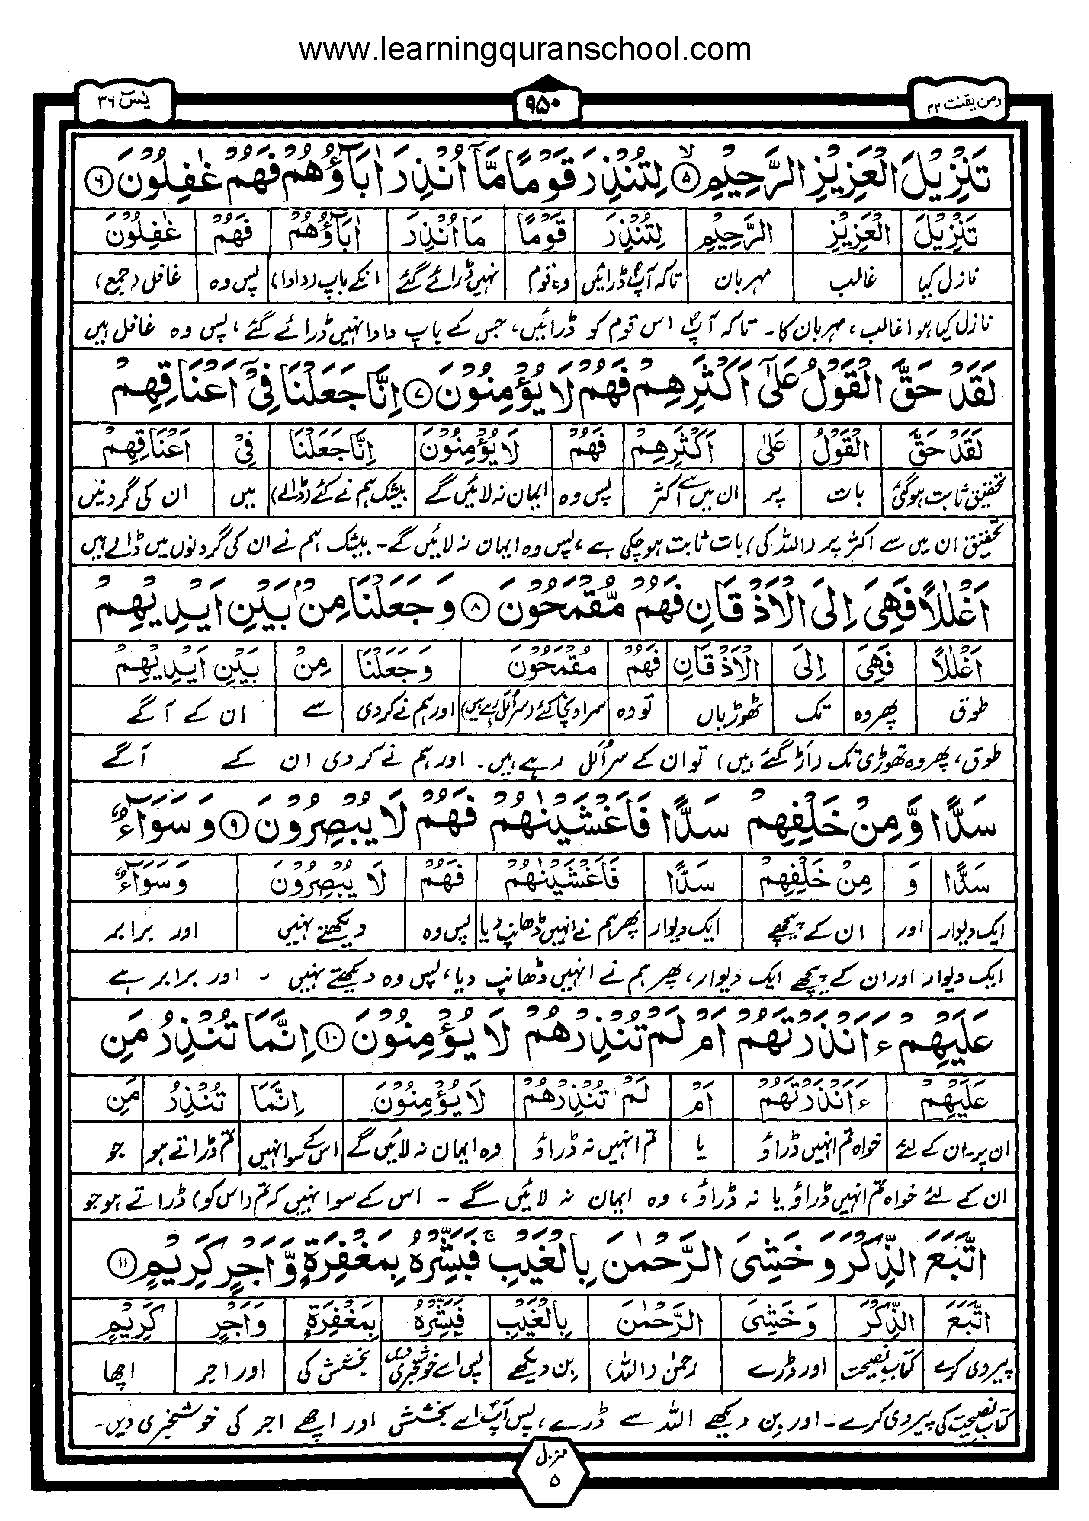 www.learningquranschool.com
ومن یقنت ۲۲ ۹۵۰ یٰسٓ ۳۶
تَنْزِيْلَ الْعَزِيْزِ الرَّحِيْمِ ۵ لِتُنْذِرَ قَوْمًا مَّآ اُنْذِرَ اٰبَآؤُهُمْ فَهُمْ غٰفِلُوْنَ ۶
تَنْزِيْلَ الْعَزِيْزِ الرَّحِيْمِ لِتُنْذِرَ قَوْمًا مَا اُنْذِرَ اٰبَآؤُهُمْ فَهُمْ غٰفِلُوْنَ
نازل کیا غالب مہربان تاکہ آپ ڈرائیں وہ قوم نہیں ڈرائے گئے انکے باپ (دادا) پس وہ غافل (جمع)
نازل کیا ہوا غالب، مہربان کا۔ تاکہ آپ اس قوم کو ڈرائیں، جس کے باپ دادا نہیں ڈرائے گئے، پس وہ غافل ہیں
لَقَدْ حَقَّ الْقَوْلُ عَلٰٓى اَكْثَرِهِمْ فَهُمْ لَا يُؤْمِنُوْنَ ۷ اِنَّا جَعَلْنَا فِيْٓ اَعْنَاقِهِمْ
لَقَدْ حَقَّ الْقَوْلُ عَلٰى اَكْثَرِهِمْ فَهُمْ لَا يُؤْمِنُوْنَ اِنَّا جَعَلْنَا فِيْ اَعْنَاقِهِمْ
تحقیق ثابت ہوگئی بات پر ان میں سے اکثر پس وہ ایمان نہ لائیں گے بیشک ہم نے کئے (ڈالے) میں ان کی گردنیں
تحقیق ان میں سے اکثر پر (اللہ کی) بات ثابت ہوچکی ہے، پس وہ ایمان نہ لائیں گے۔ بیشک ہم نے ان کی گردنوں میں ڈالے ہیں
اَغْلٰلًا فَهِيَ اِلَى الْاَذْقَانِ فَهُمْ مُّقْمَحُوْنَ ۸ وَجَعَلْنَا مِنْۢ بَيْنِ اَيْدِيْهِمْ
اَغْلٰلًا فَهِيَ اِلَى الْاَذْقَانِ فَهُمْ مُقْمَحُوْنَ وَجَعَلْنَا مِنْ بَيْنِ اَيْدِيْهِمْ
طوق پھر وہ تک ٹھوڑیاں تو وہ سر اونچا کئے (سر اُلل رہے ہیں) اور ہم نے کردی سے ان کے آگے
طوق، پھر وہ ٹھوڑی تک (اڑ گئے ہیں) تو ان کے سر اُلل رہے ہیں۔ اور ہم نے کردی ان کے آگے
سَدًّا وَّمِنْ خَلْفِهِمْ سَدًّا فَاَغْشَيْنٰهُمْ فَهُمْ لَا يُبْصِرُوْنَ ۹ وَسَوَآءٌ
سَدًّا وَ مِنْ خَلْفِهِمْ سَدًّا فَاَغْشَيْنٰهُمْ فَهُمْ لَا يُبْصِرُوْنَ وَسَوَآءٌ
ایک دیوار اور ان کے پیچھے ایک دیوار پھر ہم نے انہیں ڈھانپ دیا پس وہ دیکھتے نہیں اور برابر
ایک دیوار اور ان کے پیچھے ایک دیوار، پھر ہم نے انہیں ڈھانپ دیا، پس وہ دیکھتے نہیں ۔ اور برابر ہے
عَلَيْهِمْ ءَاَنْذَرْتَهُمْ اَمْ لَمْ تُنْذِرْهُمْ لَا يُؤْمِنُوْنَ ۱۰ اِنَّمَا تُنْذِرُ مَنِ
عَلَيْهِمْ ءَاَنْذَرْتَهُمْ اَمْ لَمْ تُنْذِرْهُمْ لَا يُؤْمِنُوْنَ اِنَّمَا تُنْذِرُ مَنِ
ان پر۔ان کے لئے خواہ تم انہیں ڈراؤ یا تم انہیں نہ ڈراؤ وہ ایمان نہ لائیں گے اس کے سوا نہیں تم ڈراتے ہو جو
ان کے لئے خواہ تم انہیں ڈراؤ یا نہ ڈراؤ، وہ ایمان نہ لائیں گے ۔ اس کے سوا نہیں کہ تم (اس کو) ڈراتے ہو جو
اتَّبَعَ الذِّكْرَ وَخَشِيَ الرَّحْمٰنَ بِالْغَيْبِ ۚ فَبَشِّرْهُ بِمَغْفِرَةٍ وَّاَجْرٍ كَرِيْمٍ ۱۱
اتَّبَعَ الذِّكْرَ وَخَشِيَ الرَّحْمٰنَ بِالْغَيْبِ فَبَشِّرْهُ بِمَغْفِرَةٍ وَاَجْرٍ كَرِيْمٍ
پیروی کرے کتاب نصیحت اور ڈرے رحمٰن (اللہ) بن دیکھے پس اسے خوشخبری دیں بخشش کی اور اجر اچھا
کتاب نصیحت کی پیروی کرے۔ اور بن دیکھے اللہ سے ڈرے، پس آپ اسے بخشش اور اچھے اجر کی خوشخبری دیں۔
منزل
۵